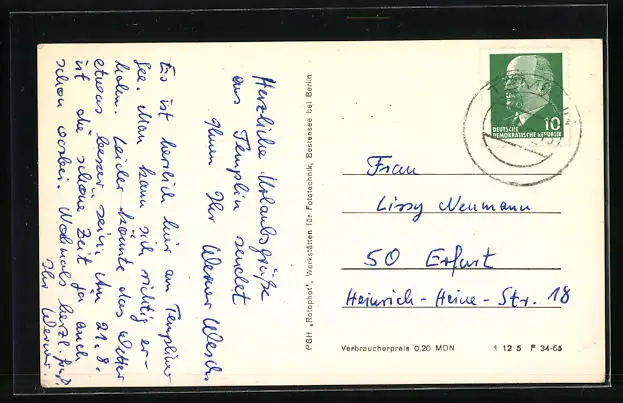 Herzliche Urlaubsgrüße
aus Templin sendet
Ihnen Ihr Werner
Es ist herrlich hier am Templiner
See. Man kann sich richtig er-
holen. Leider könnte das Wetter
etwas besser sein. Am 21.8.
ist die schöne Zeit ja auch
schon vorbei. Nochmals herzl. Grüße
Ihr Werner.
PGH „Rotophot", Werkstätten für Fototechnik, Bestensee bei Berlin
TEMPLIN
10
DEUTSCHE
DEMOKRATISCHE REPUBLIK
Frau
Lissy Neumann
50 Erfurt
Heinrich-Heine-Str. 18
Verbraucherpreis 0,20 MDN
1 12 5 F 34-65